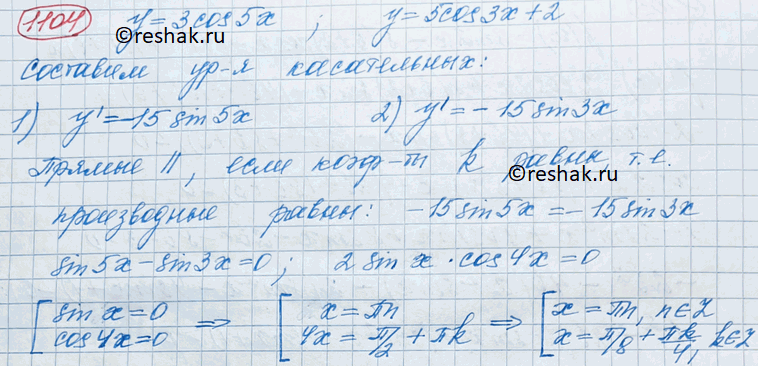 1104 y=3cos5x ; y=5cos3x+2
©reshak.ru
составим ур-я касательных:
1) y'=-15sin5x 2) y'=-15sin3x
Прямые ||, если коэф-ты k равны, т.е.
©reshak.ru
производные равны: -15sin5x=-15sin3x
sin5x-sin3x=0; 2sin x·cos4x=0
[ sin x=0 => [ x=πn => [ x=πn, n∈Z
cos4x=0 4x=π/2+πk x=π/8+πk/4, k∈Z